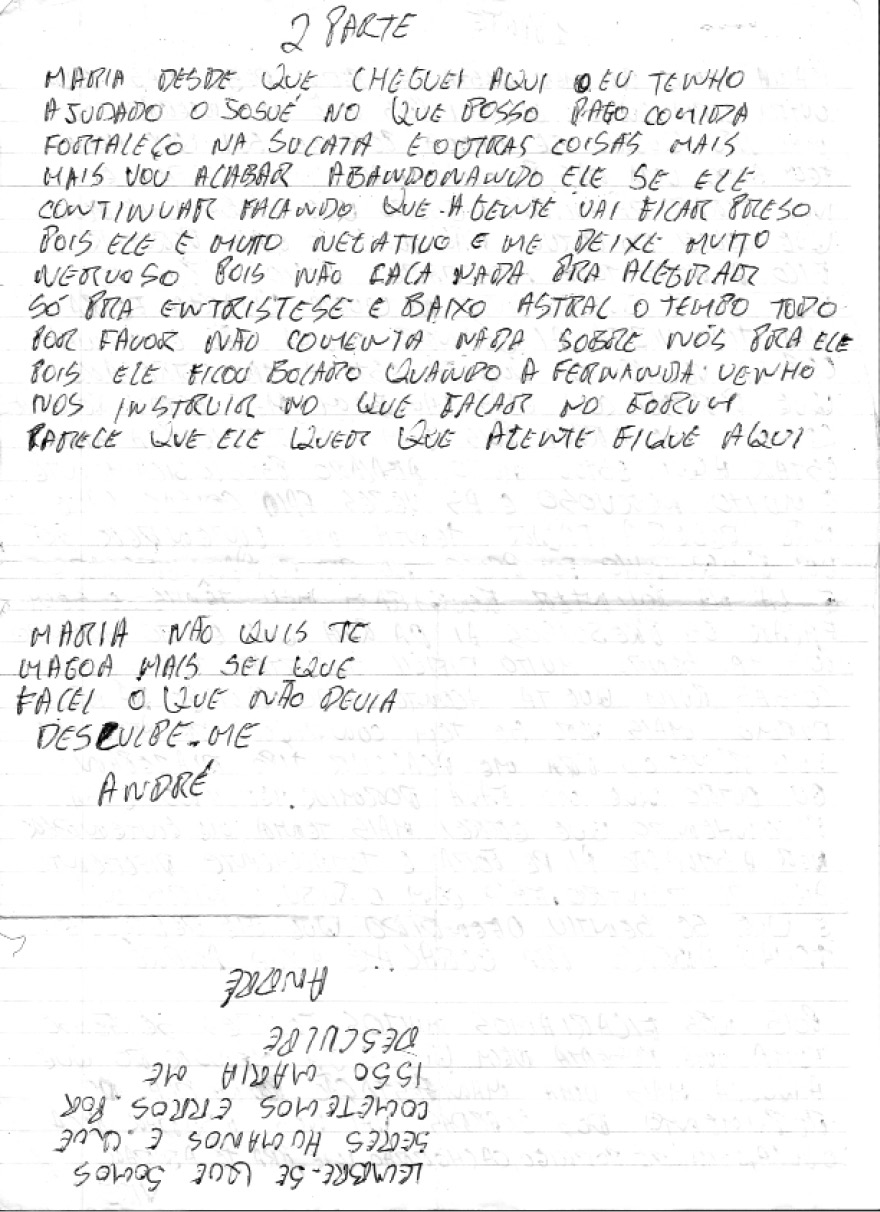 2 PARTE
MARIA DESDE QUE CHEGUEI AQUI EU TENHO
AJUDADO O JOSUÉ NO QUE POSSO PAGO COMIDA
FORTALEÇO NA SUCATA E OUTRAS COISAS MAIS
MAIS VOU ACABAR ABANDONANDO ELE SE ELE
CONTINUAR FALANDO QUE A GENTE VAI FICAR PRESO
POIS ELE E MUITO NEGATIVO E ME DEIXE MUITO
NERVOSO POIS NÃO FALA NADA PRA ALEGRAR
SÓ PRA ENTRISTESE E BAIXO ASTRAL O TEMPO TODO
POR FAVOR NÃO COMENTA NADA SOBRE NÓS PRA ELE
POIS ELE FICOU BOLADO QUANDO A FERNANDA VENHO
NOS INSTRUIR NO QUE FALAR NO FORUM
PARECE QUE ELE QUER QUE AGENTE FIQUE AQUI
MARIA NÃO QUIS TE
MAGOA MAIS SEI QUE
FALEI O QUE NÃO DEVIA
DESCULPE-ME
ANDRÉ
LEMBRE-SE QUE SOMOS
SERES HUMANOS E QUE
COMETEMOS ERROS POR
ISSO MARIA ME
DESCULPE
ANDRÉ